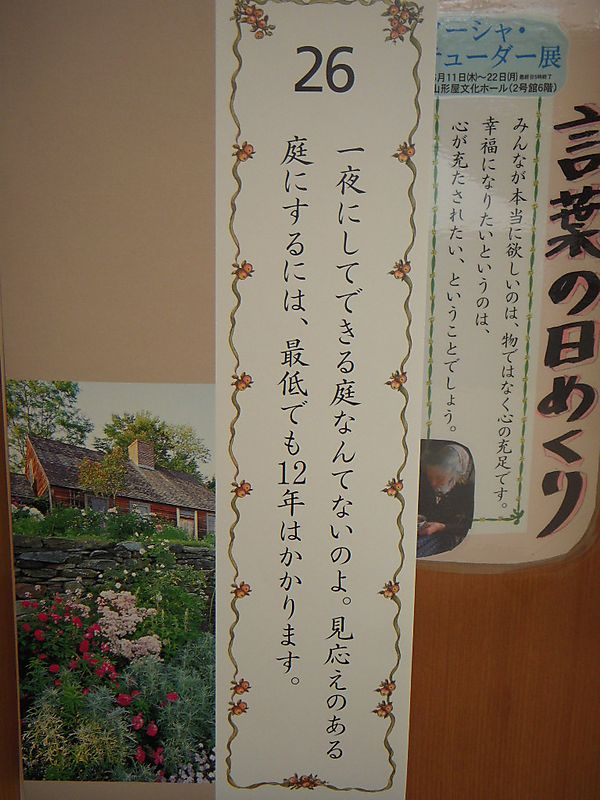 26
一夜にしてできる庭なんてないのよ。見応えのある
庭にするには、最低でも12年はかかります。
ーシャ・
チューダー展
月11日(木)～22日(月)最終日5時終了
山形屋文化ホール(2号館6階)
言葉の日めくり
みんなが本当に欲しいのは、物ではなく心の充足です。
幸福になりたいというのは、
心が充たされたい、ということでしょう。